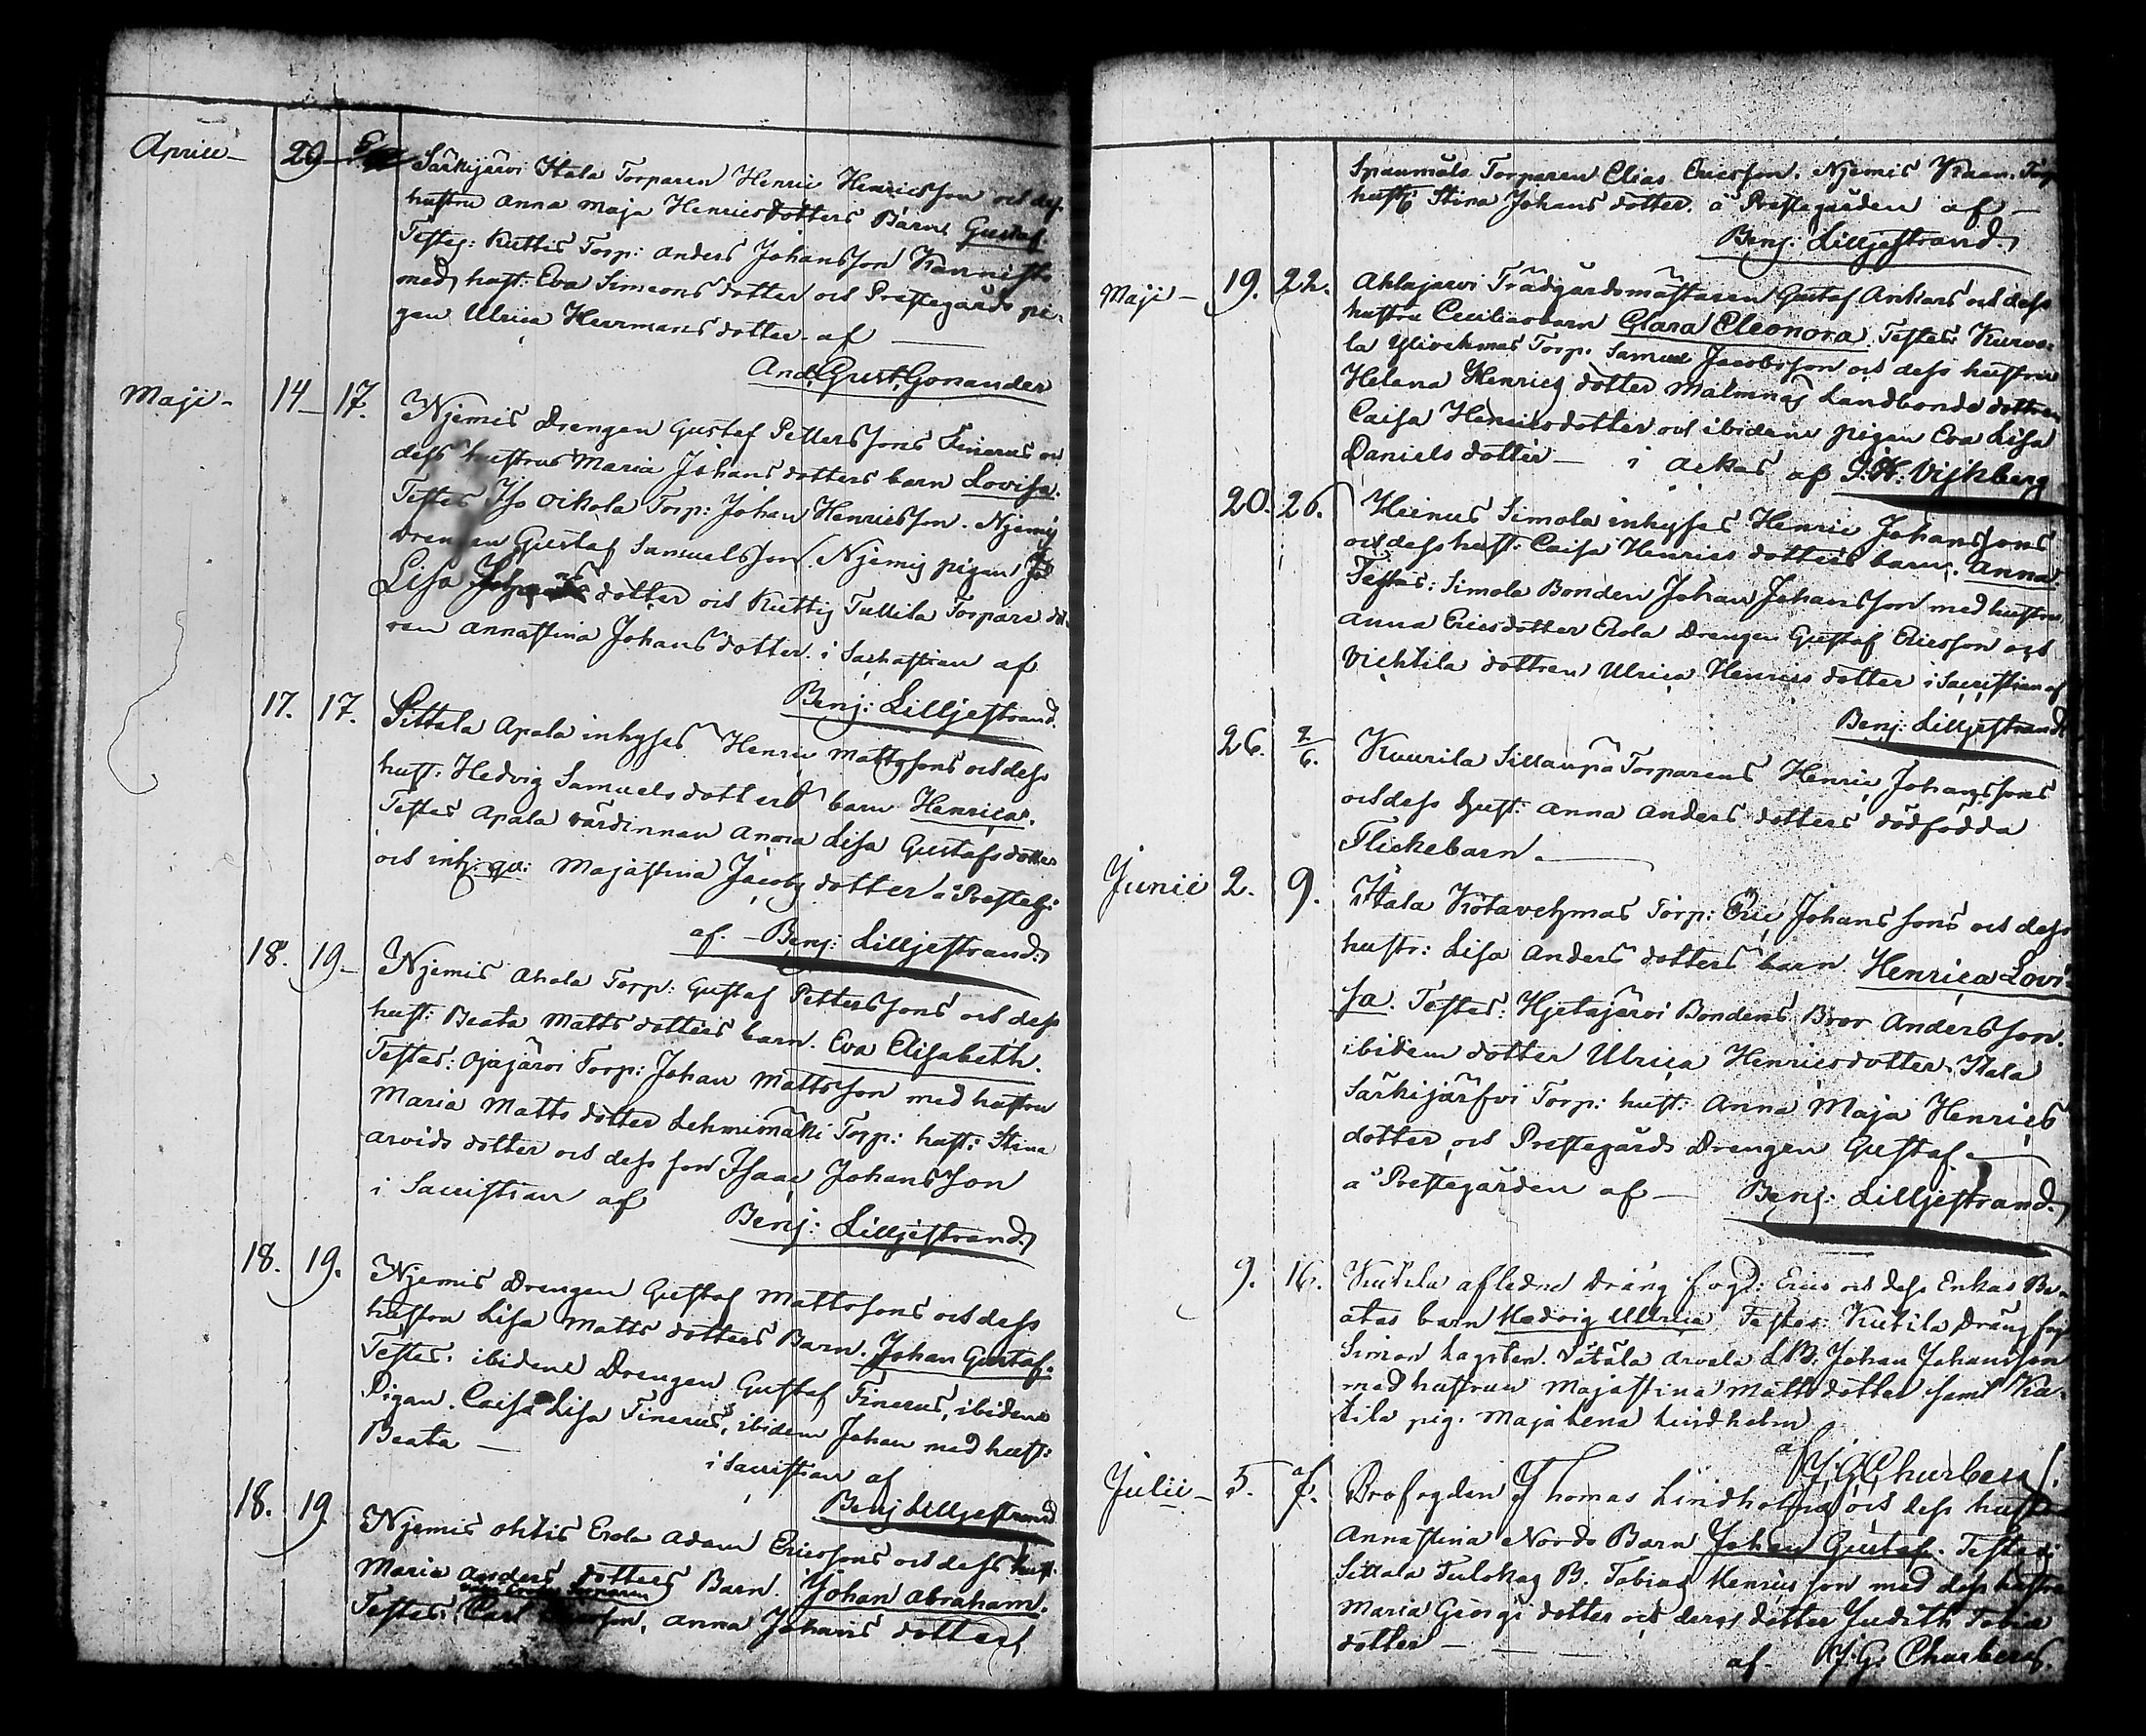 Aprill 29
Särkijärvi Itala Torparen Henric Henricsson och dess
hustru Anna Maja Henricsdotters Barn Gustaf
Testes: Kuttis Torp: Anders Johansson Kannisto
med hust: Eva Simeonsdotter och Prestegårds pi-
gan Ulrica Herrmansdotter af
And: Gust: Gonander
Maji 14 17. Njemis Drengen Gustaf Pettersson Finerus och
dess hustrus Maria Johansdotters barn Lovisa.
Testes Iso Oikola Torp: Johan Henricsson. Njemis
Drengen Gustaf Samuelsson. Njemis pigan
Lisa dotter och Kuttis Tullila Torpare dot
ren Annastina Johansdotter. i Sachastian af
Benj: Lilljestrand.
17. 17. Sittala Apala inhyses Henric Mattssons och dess
hust: Hedvig Samuelsdotters barn Henrica.
Testes Apala värdinnan Anna Lisa Gustafsdotter
och inh: qv: Majastina Jacobsdotter å Presteg:
af. Benj: Lilljestrand.
18. 19 Njemis Ahola Torp: Gustaf Petterssons och dess
hust: Beata Mattsdotters barn. Eva Elisabeth.
Testes: Ojajärvi Torp: Johan Mattsson med hustru
Maria Mattsdotter Lehmimäki Torp: hust: Stina
Arvidsdotter och dess son Isaac Johansson
i Sacristian af
Benj: Lilljestrand.
18. 19. Njemis Drengen Gustaf Mattssons och dess
hustru Lisa Mattsdotters Barn. Johan Gustaf.
Testes. ibidem Drengen Gustaf Finerus, ibidem
Pigan. Caisa Lisa Finerus, ibidem Johan med hust:
Beata
i Sacristian af
Benj Lilljestrand
18. 19 Njemis Ohtis Erola Adam Ericssons och dess hust
Maria Andersdotters Barn. Johan Abraham.
Testes: Carl Anna Johansdotter,
Torparen Elias Ericsson. Njemis Torp
hust: Stina Johansdotter. å Prestegården af
Benj. Lilljestrand.
Maji 19. 22. Ahlajärvi Trädgårdsmästaren Gustaf Ankars och dess
hustru Cecilias barn Clara Eleonora. Testes: Kurvo-
la Ylivehmas Torp. Samuel Jacobsson och dess hustru
Helena Henricsdotter Malmnäs Landbonde dottren
Caisa Henricsdotter och ibidem pigan Eva Lisa
Danielsdotter i Ackas af
20. 26. Heinus Simola inhyses Henric Johanssons
och dess hust: Caisa Henricsdotters barn. Anna.
Testes: Simola Bonden Johan Johansson med hustru
Anna Ericsdotter Erola Drengen Gustaf Ericsson och
Vichtila dottren Ulrica Henricsdotter i Sacristian af
Benj: Lilljestrand
26. 2/6. Kuurila Sillanpä Torparens Henric Johanssons
och dess hust: Anna Andersdotters dödfödda
Flickebarn.
Junii 2. 9. Itala Kotavehmas Torp: Eric Johanssons och dess
hustr: Lisa Andersdotters barn Henrica Lovi
sa. Testes: Hjetajärvi Bondens Bror Andersson.
ibidem dotter Ulrica Henricsdotter. Itala
Särkijärfvi Torp: hust: Anna Maja Henrics
dotter, och Prestegårds Drengen Gustaf.
å Prestegården af Benj: Lilljestrand.
9. 16. Kutila afledne Dräng fogd: Erics och dess Enkas Be-
atas barn Hedvig Ulrica Testes: Kutila Dräng fog
Simon Lagsten. Vätälä Arvela L.B: Johan Johansson
med hustrun Majastina Mattsdotter samt Ku-
tila pig. Maja Lena Lindholm
af J. G. Churberg.
Julii 5. Brofogden Thomas Lindholms och dess hustru
Annastina Nords Barn Johan Gustaf. Testes:
Sittala Tulokas B. Tobias Henricsson med dess hustru
Maria Georgidotter och deras dotter Judith Tobia
dotter
af. J: G: Churberg.